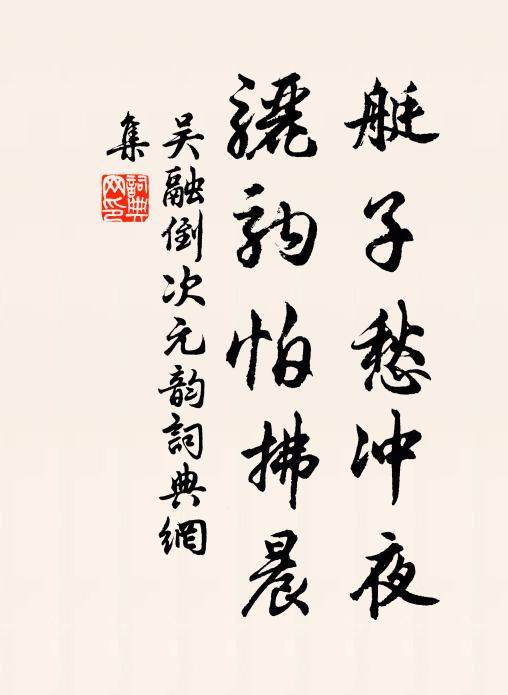 艇子愁冲夜
驪駒怕拂晨
吴融倒次元韵詞典網
集
詞典网印